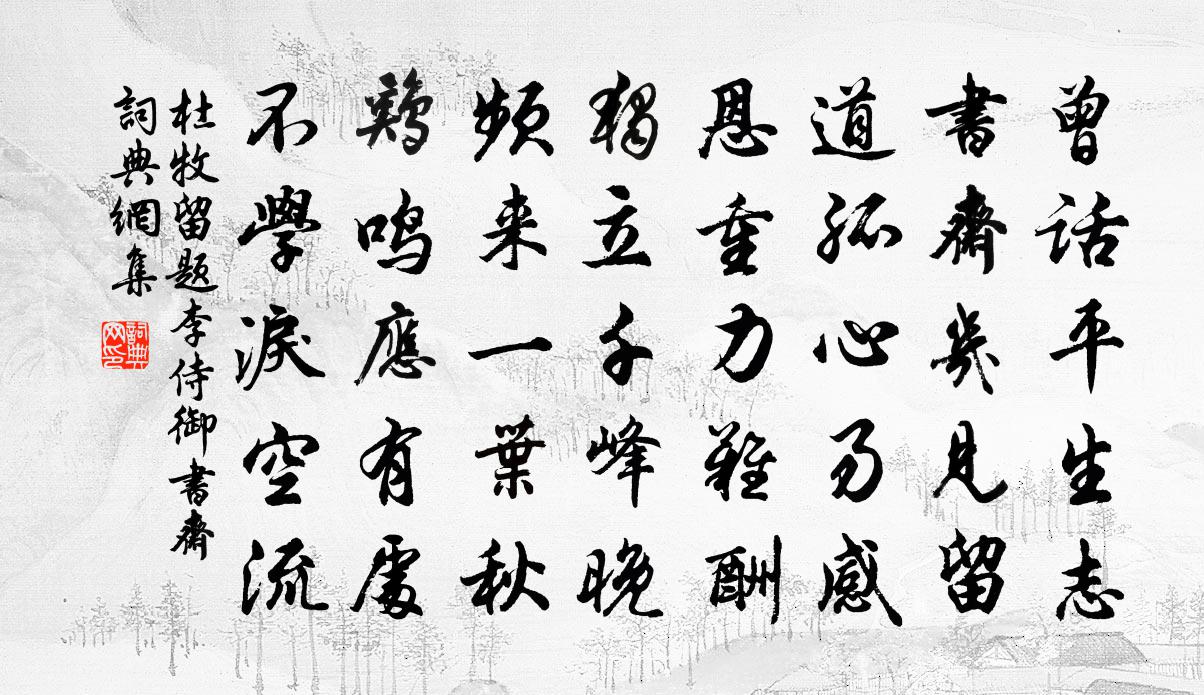 曾話平生志
書齋幾見留
道孤心易感
恩重力難酬
獨立千峰晚
頻来一葉秋
鷄鳴應有處
不學淚空流
杜牧留題李侍御書齋
詞典網集
詞典网印